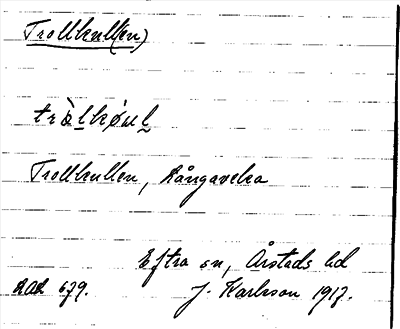 Trollkull(en)
Trollkullen, Rångavelea
Eftra sn, Årstads hd
RAÄ 679. J. Karlsson 1917.